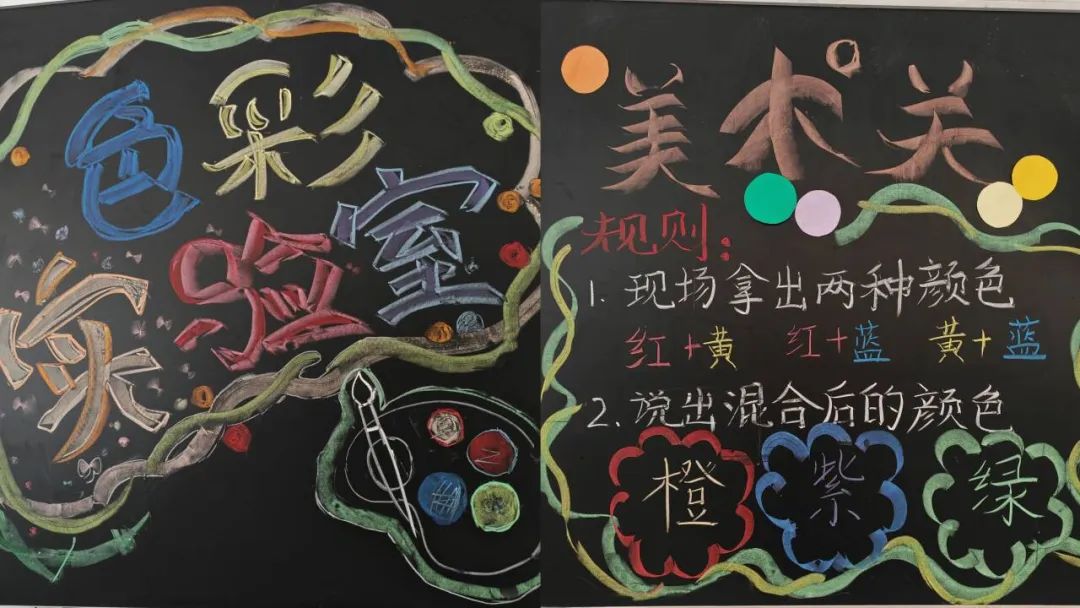 色彩
实验室
美术关
规则:
1. 现场拿出两种颜色
红+黄 红+蓝 黄+蓝
2. 说出混合后的颜色
橙 紫 绿